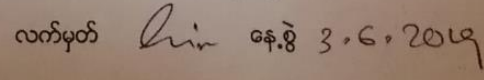 လက်မှတ် နေ့စွဲ 3.6.2019